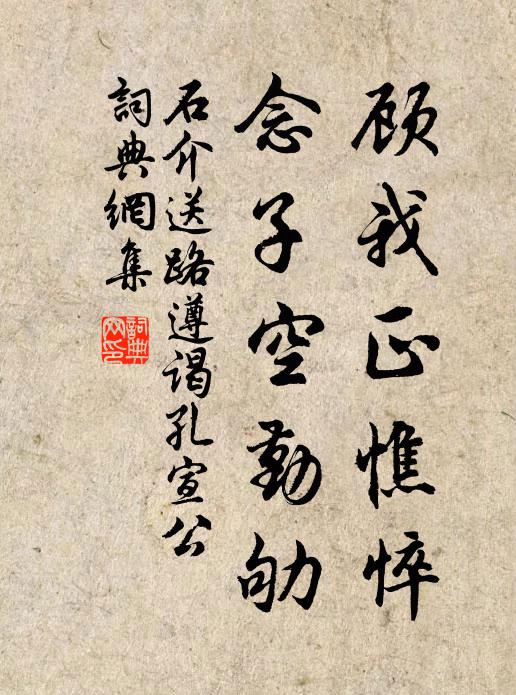 顾我正憔悴
念子空勤劬
石介送路遵谒孔宣公
詞典網集
詞典網印